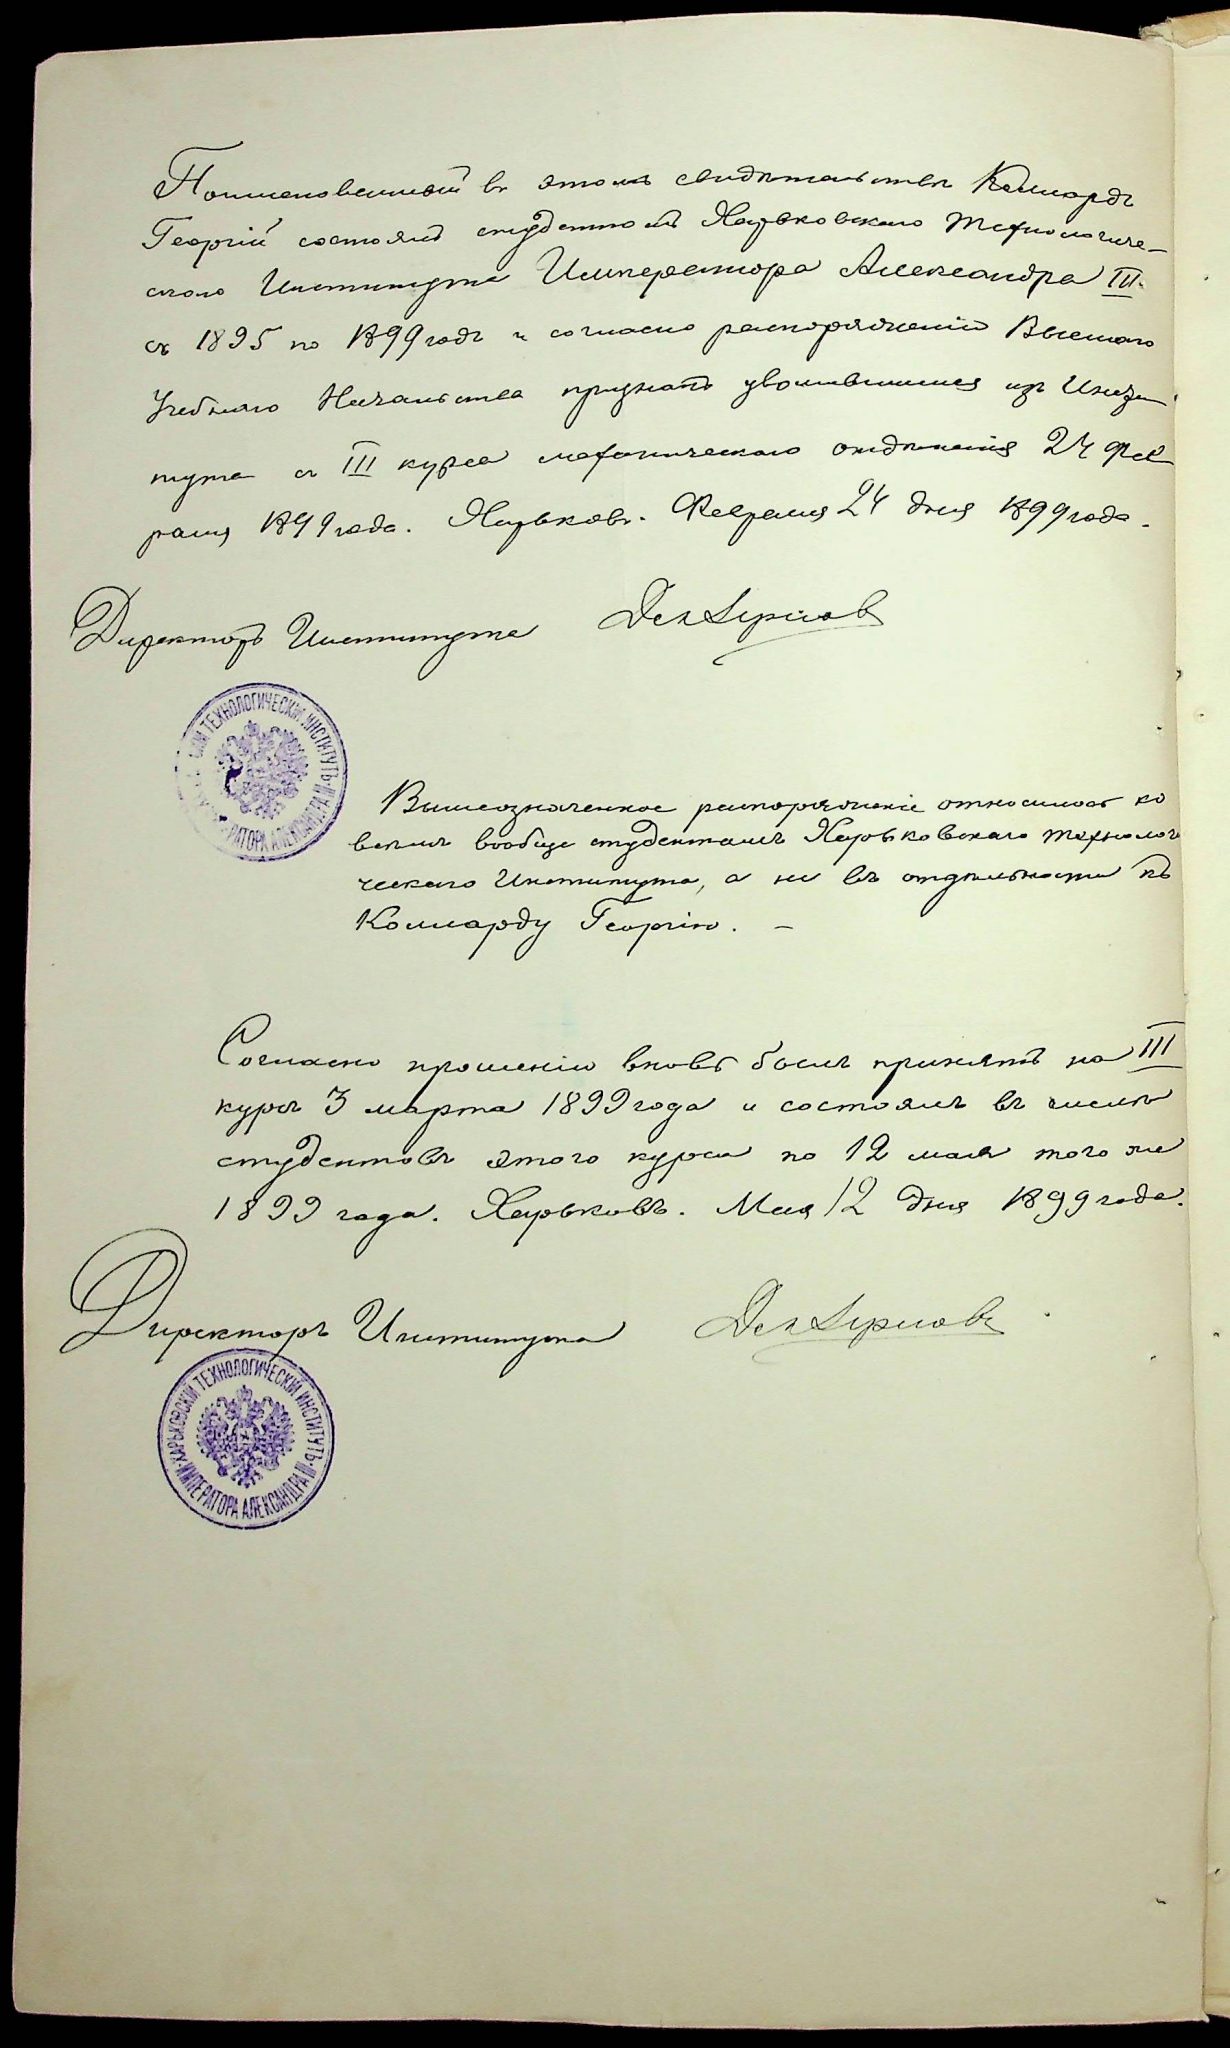 Поименованный въ этомъ свидѣтельствѣ Коллардъ
Георгій состоялъ студентомъ Харьковскаго Технологиче-
скаго Института Императора Александра III.
съ 1895 по 1899 годъ и согласно распоряженію Высшаго
Учебнаго Начальства признанъ уволившимся изъ Инсти
тута съ III курса механическаго отдѣленія 24 Фев
раля 1899 года. Харьковъ. Февраля 24 дня 1899 года.
Директоръ Института
СКІЙ ТЕХНОЛОГИЧЕСКІЙ ИНСТИТУТЪ РАТОРА АЛЕКСАНДРА III
Вышеозначенное распоряженіе относилось ко
всѣмъ вообще студентамъ Харьковскаго Технологи
ческаго Института, а не въ отдѣльности къ
Колларду Георгію. —
Согласно прошенію вновь былъ принятъ на III
курсъ 3 марта 1899 года и состоялъ въ числѣ
студентовъ этого курса по 12 мая того же
1899 года. Харьковъ. Мая 12 дня 1899 года.
Директоръ Института
ХАРЬКОВСКІЙ ТЕХНОЛОГИЧЕСКІЙ ИНСТИТУТЪ ИМПЕРАТОРА АЛЕКСАНДРА III